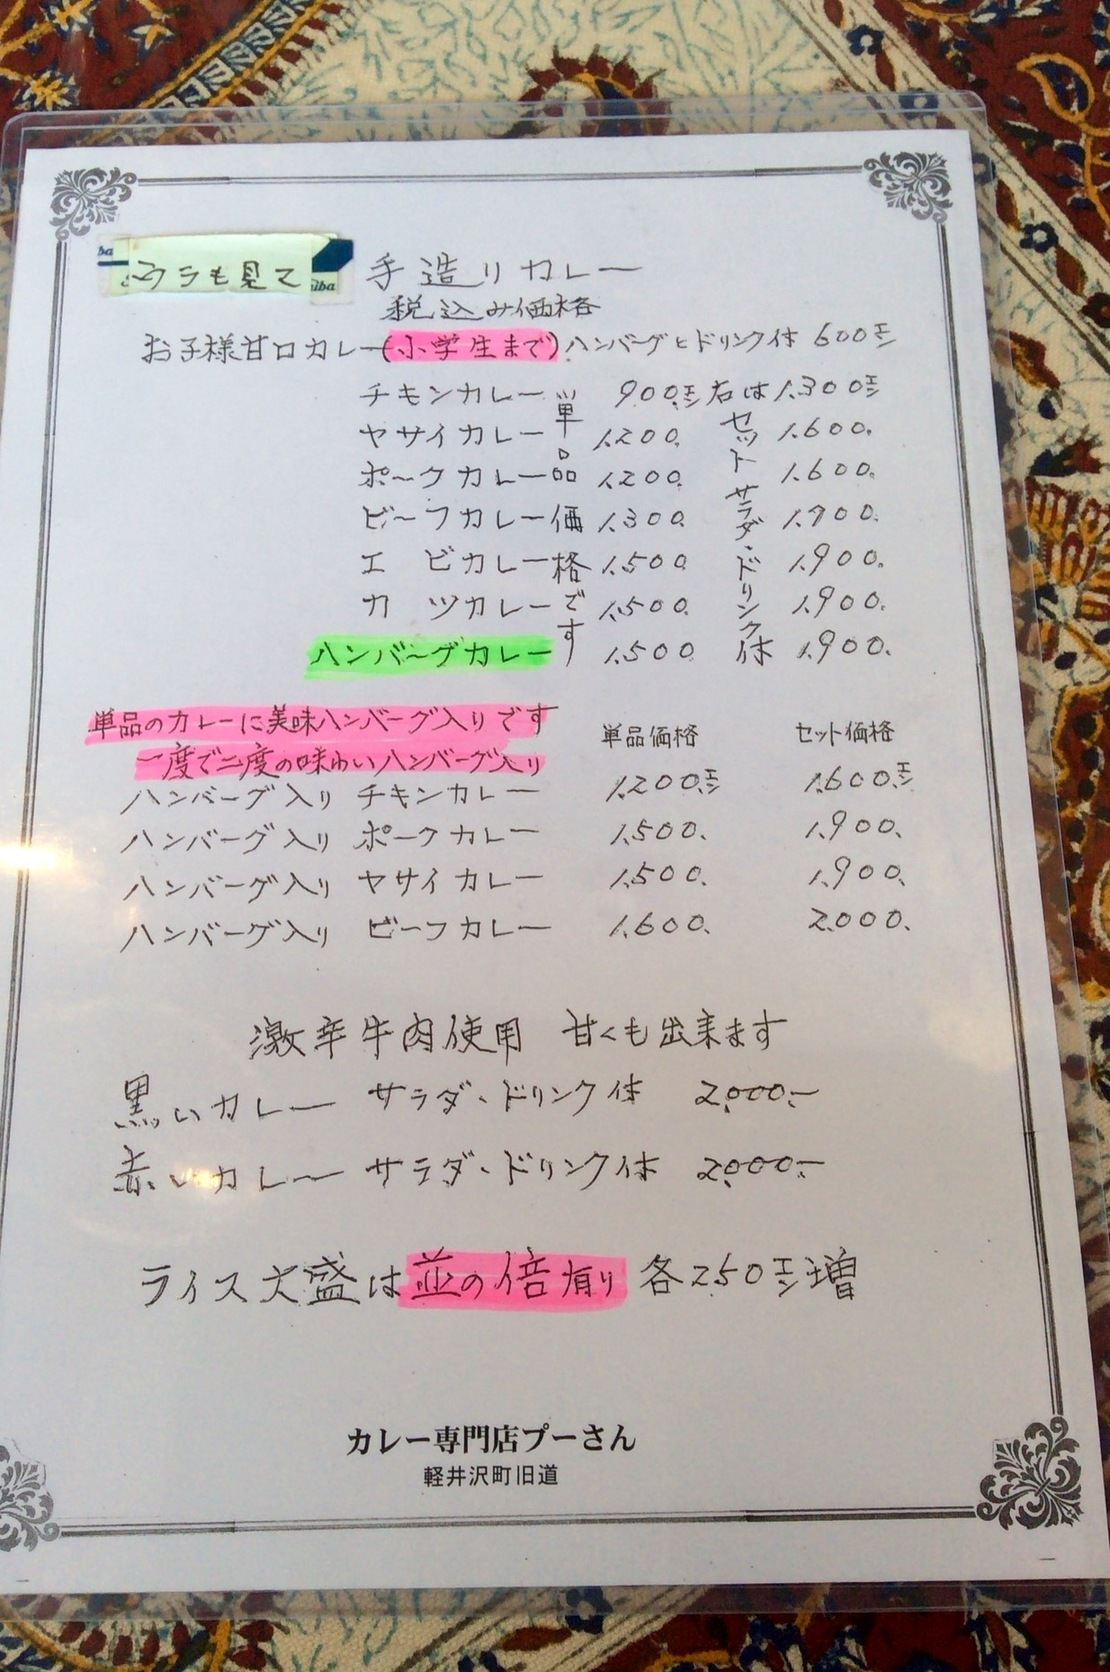 ウラも見て
手造りカレー
税込み価格
お子様甘口カレー(小学生まで)ハンバーグとドリンク付 600エン
チキンカレー 900エン 右は1.300エン
ヤサイカレー 1.200. 1.600.
ポークカレー 1.200. 1.600.
ビーフカレー 1.300. 1.700.
エビカレー 1.500. 1.900.
カツカレー 1.500. 1.900.
ハンバーグカレー 1.500. 1.900.
単品価格です
セットサラダ・ドリンク付
単品のカレーに美味ハンバーグ入りです
一度で二度の味わいハンバーグ入り
単品価格 セット価格
ハンバーグ入り チキンカレー 1.200.エン 1.600.エン
ハンバーグ入り ポークカレー 1.500. 1.900.
ハンバーグ入り ヤサイカレー 1.500. 1.900.
ハンバーグ入り ビーフカレー 1.600. 2.000.
激辛牛肉使用 甘くも出来ます
黒いカレー サラダ・ドリンク付 2.000.-
赤いカレー サラダ・ドリンク付 2.000.-
ライス大盛は並の倍有り 各250エン増
カレー専門店プーさん
軽井沢町旧道